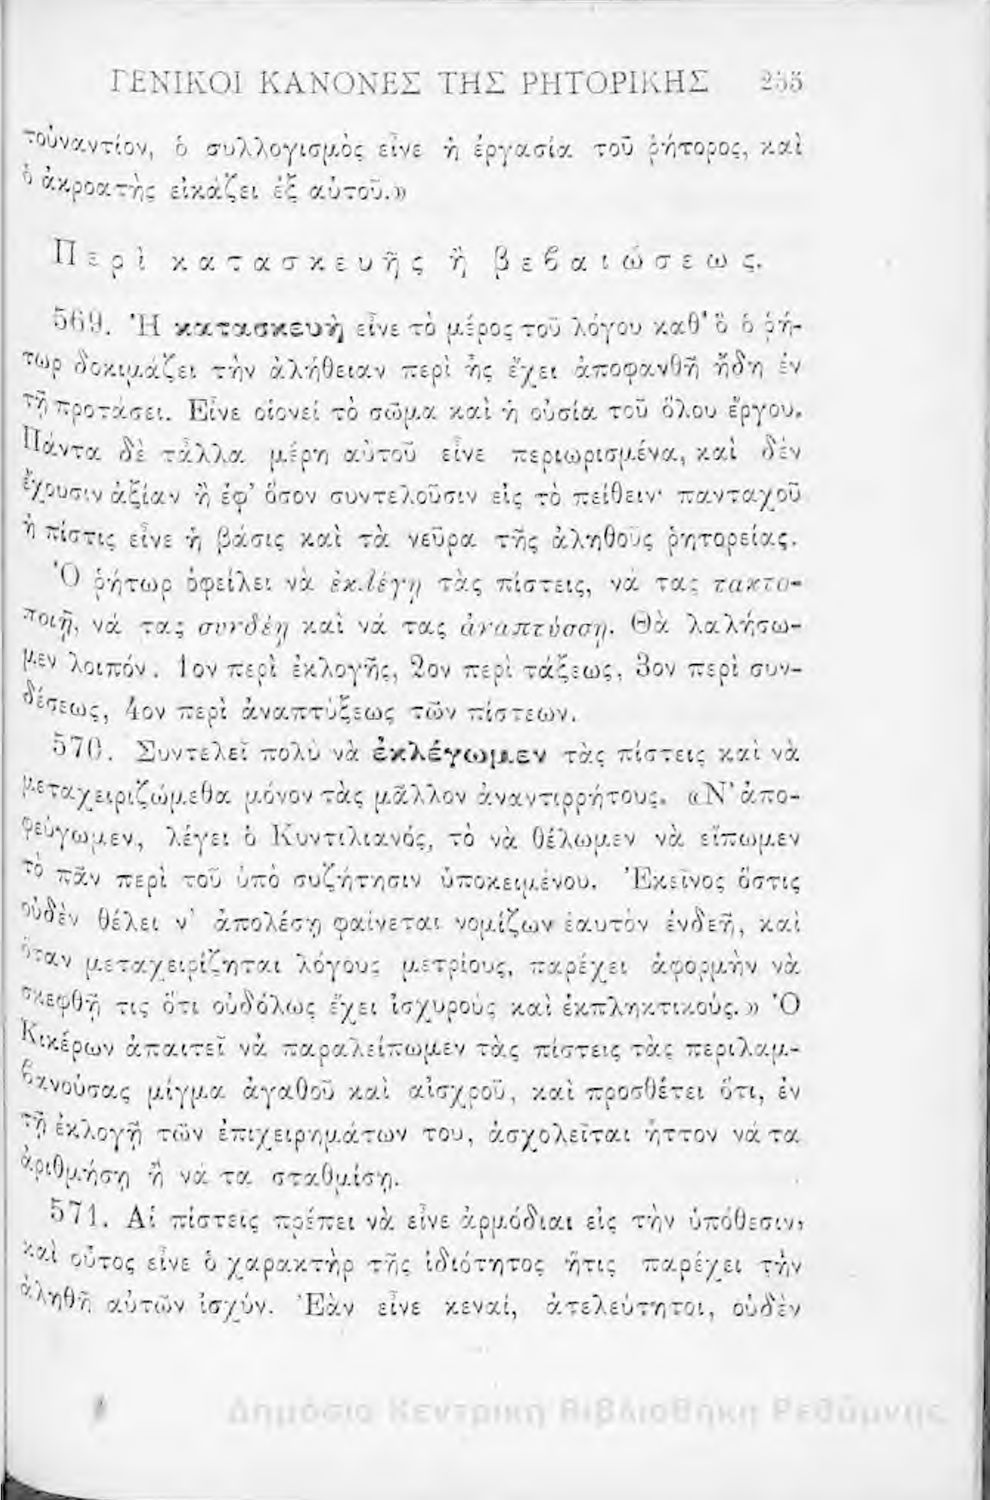 ΓΕΝΙΚΟΙ ΚΑΝΟΝΕΣ ΤΗΣ ΡΗΤΟΡΙΚΗΣ 255
τοὐναντίον, ὁ συλλογισμὸς εἶνε ἡ ἐργασία τοῦ ῥήτορος, καὶ
ὁ ἀκροατὴς εἰκάζει ἐξ αὐτοῦ.»
Περὶ κατασκευῆς ἢ βεβαιώσεως.
569. Ἡ κατασκευὴ εἶνε τὸ μέρος τοῦ λόγου καθ' ὃ ὁ ῥή-
τωρ δοκιμάζει τὴν ἀλήθειαν περὶ ἧς ἔχει ἀποφανθῆ ἤδη ἐν
τῇ προτάσει. Εἶνε οἱονεὶ τὸ σῶμα καὶ ἡ οὐσία τοῦ ὅλου ἔργου.
Πάντα δὲ τἆλλα μέρη αὐτοῦ εἶνε περιωρισμένα, καὶ δὲν
ἔχουσιν ἀξίαν ἢ ἐφ' ὅσον συντελοῦσιν εἰς τὸ πείθειν· πανταχοῦ
ἡ πίστις εἶνε ἡ βάσις καὶ τὰ νεῦρα τῆς ἀληθοῦς ῥητορείας.
Ὁ ῥήτωρ ὀφείλει νὰ ἐκλέγῃ τὰς πίστεις, νά τας τακτο-
ποιῇ, νά τας συνδέῃ καὶ νά τας ἀναπτύσσῃ. Θὰ λαλήσω-
μεν λοιπόν. 1ον περὶ ἐκλογῆς, 2ον περὶ τάξεως, 3ον περὶ συν-
δέσεως, 4ον περὶ ἀναπτύξεως τῶν πίστεων.
570. Συντελεῖ πολὺ νὰ ἐκλέγωμεν τὰς πίστεις καὶ νὰ
μεταχειριζώμεθα μόνον τὰς μᾶλλον ἀναντιρρήτους. «Ν' ἀπο-
φεύγωμεν, λέγει ὁ Κυντιλιανός, τὸ νὰ θέλωμεν νὰ εἴπωμεν
τὸ πᾶν περὶ τοῦ ὑπὸ συζήτησιν ὑποκειμένου. Ἐκεῖνος ὅστις
οὐδὲν θέλει ν' ἀπολέσῃ φαίνεται νομίζων ἑαυτὸν ἐνδεῆ, καὶ
ὅταν μεταχειρίζηται λόγους μετρίους, παρέχει ἀφορμὴν νὰ
σκεφθῇ τις ὅτι οὐδόλως ἔχει ἰσχυροὺς καὶ ἐκπληκτικούς.» Ὁ
Κικέρων ἀπαιτεῖ νὰ παραλείπωμεν τὰς πίστεις τὰς περιλαμ-
βανούσας μίγμα ἀγαθοῦ καὶ αἰσχροῦ, καὶ προσθέτει ὅτι, ἐν
τῇ ἐκλογῇ τῶν ἐπιχειρημάτων του, ἀσχολεῖται ἧττον νά τα
ἀριθμήσῃ ἢ νά τα σταθμίσῃ.
571. Αἱ πίστεις πρέπει νὰ εἶνε ἁρμόδιαι εἰς τὴν ὑπόθεσιν,
καὶ οὗτος εἶνε ὁ χαρακτὴρ τῆς ἰδιότητος ἥτις παρέχει τὴν
ἀληθῆ αὐτῶν ἰσχύν. Ἐὰν εἶνε κεναί, ἀτελεύτητοι, οὐδὲν
Δημόσια Κεντρική Βιβλιοθήκη Ρεθύμνης